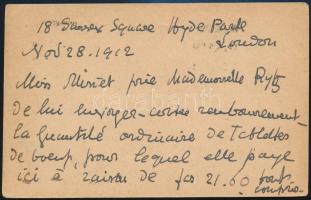 18 Sussex Square Hyde Park
London
Nov 28. 1912
Miss Minet prie Mademoiselle
de lui envoyer contre remboursement
la quantité ordinaire de Tablettes
de boeuf, pour lequel elle paye
ici à raison de frs 21.60 tout
compris.